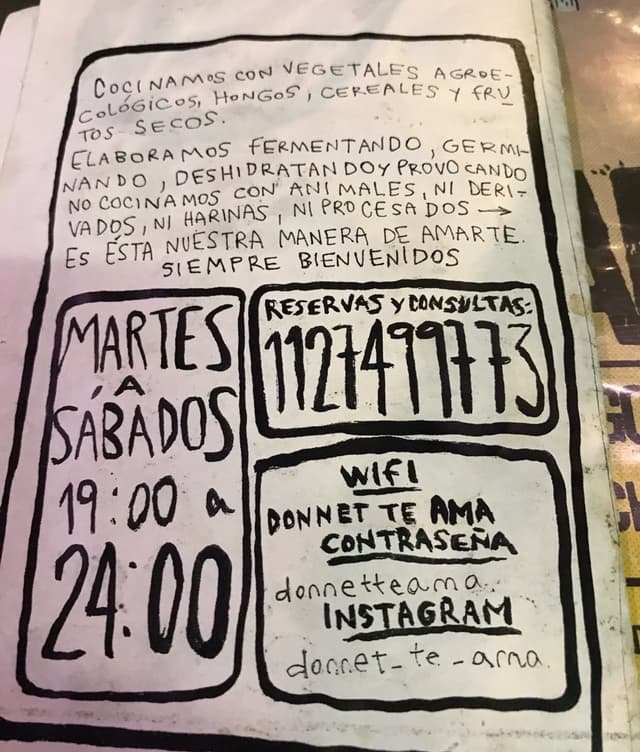 COCINAMOS CON VEGETALES AGROE-
COLÓGICOS, HONGOS, CEREALES Y FRU
TOS SECOS.
ELABORAMOS FERMENTANDO, GERMI-
NANDO, DESHIDRATANDO Y PROVOCANDO
NO COCINAMOS CON ANIMALES, NI DERI-
VADOS, NI HARINAS, NI PROCESADOS →
ES ÉSTA NUESTRA MANERA DE AMARTE.
SIEMPRE BIENVENIDOS
MARTES
A
SÁBADOS
19:00 a
24:00
RESERVAS Y CONSULTAS:
1127499773
WIFI
DONNET TE AMA
CONTRASEÑA
donnetteama
INSTAGRAM
donnet_te_ama